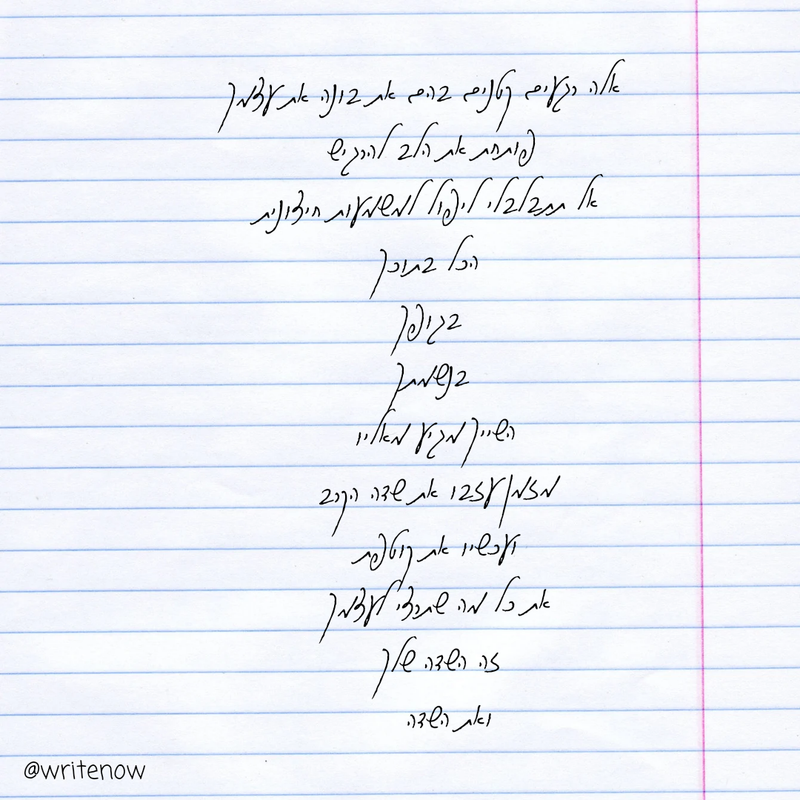 אלה רגעים קטנים בהם את בונה את עצמך
פותחת את הלב להרגיש
אל תתבלבלי ליפול למשמעות חיצונית
הכל בתוכך
בגופך
בנשמתך
השייך מגיע מאליו
מזמן עזבו את שדה הקרב
ועכשיו את קוטפת
את כל מה שתרצי לעצמך
זה השדה שלך
ואת השדה
@writenow